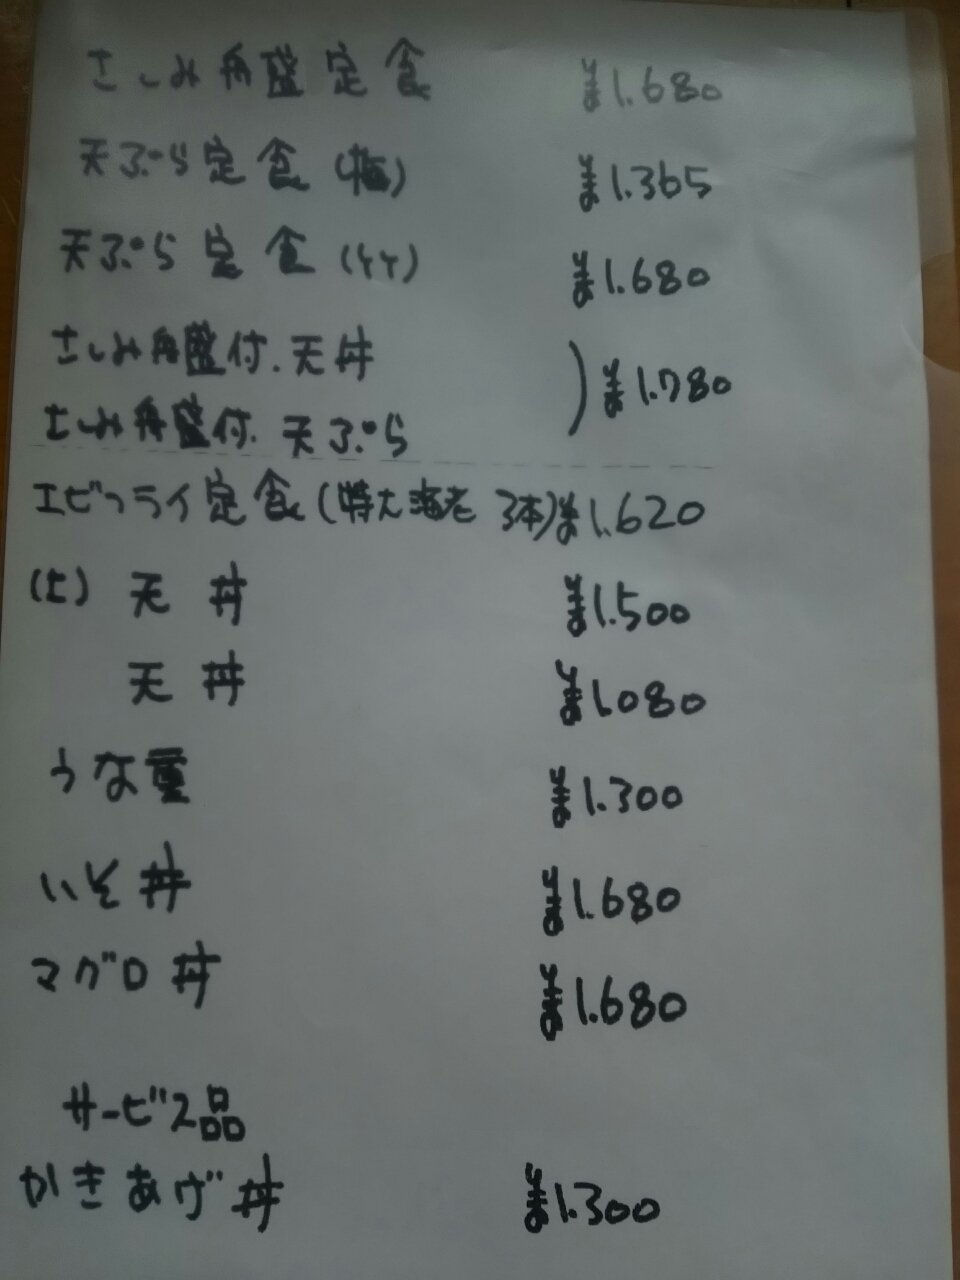 さしみ舟盛定食 ¥1.680
天ぷら定食(梅) ¥1.365
天ぷら定食(竹) ¥1.680
さしみ舟盛付.天丼
さしみ舟盛付.天ぷら ) ¥1.780
エビフライ定食(特大海老 3本)¥1.620
(上) 天丼 ¥1.500
天丼 ¥1.080
うな重 ¥1.300
いそ丼 ¥1.680
マグロ丼 ¥1.680
サービス品
かきあげ丼 ¥1.300